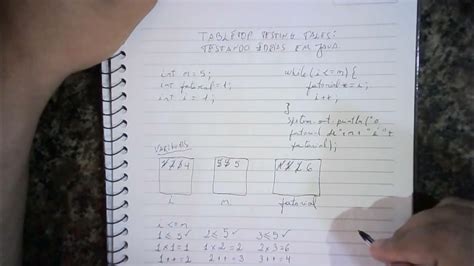 TABLETOP TESTING TALES:
TESTANDO IDEIAS EM JAVA
int m = 5;
int fatorial = 1;
int i = 1;
while (i <= m) {
fatorial *= i;
i++;
}
System.out.println("O
fatorial de "+m+" é "+
fatorial);
VARIÁVEIS
1 2 3 4
5 5 5
1 1 2 6
i
m
fatorial
i <= m
1 ≤ 5 ✓ 2 ≤ 5 ✓ 3 ≤ 5 ✓
1 x 1 = 1 1 x 2 = 2 2 x 3 = 6
1++ = 2 2++ = 3 3++ = 4